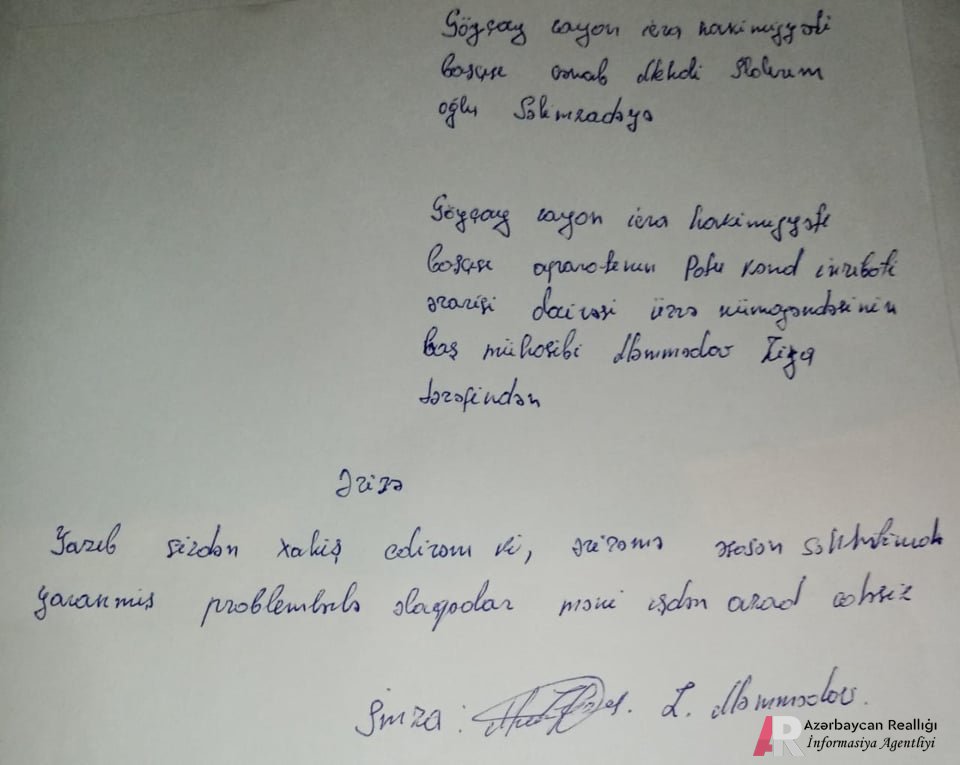 Göyçay rayon icra hakimiyyəti
başçısı cənab Mehdi Yıldırım
oğlu Səlimzadəyə
Göyçay rayon icra hakimiyyəti
başçısı aparatının Potu kənd inzibati
ərazisi dairəsi üzrə nümayəndəsinin
baş mühasibi Məmmədov Ziya
tərəfindən
Ərizə
Yazıb sizdən xahiş edirəm ki, ərizəmə əsasən səhhətimdə
yaranmış problemlərlə əlaqədar məni işdən azad edəsiz
İmza: Z. Məmmədov.
AR Azərbaycan Reallığı
İnformasiya Agentliyi